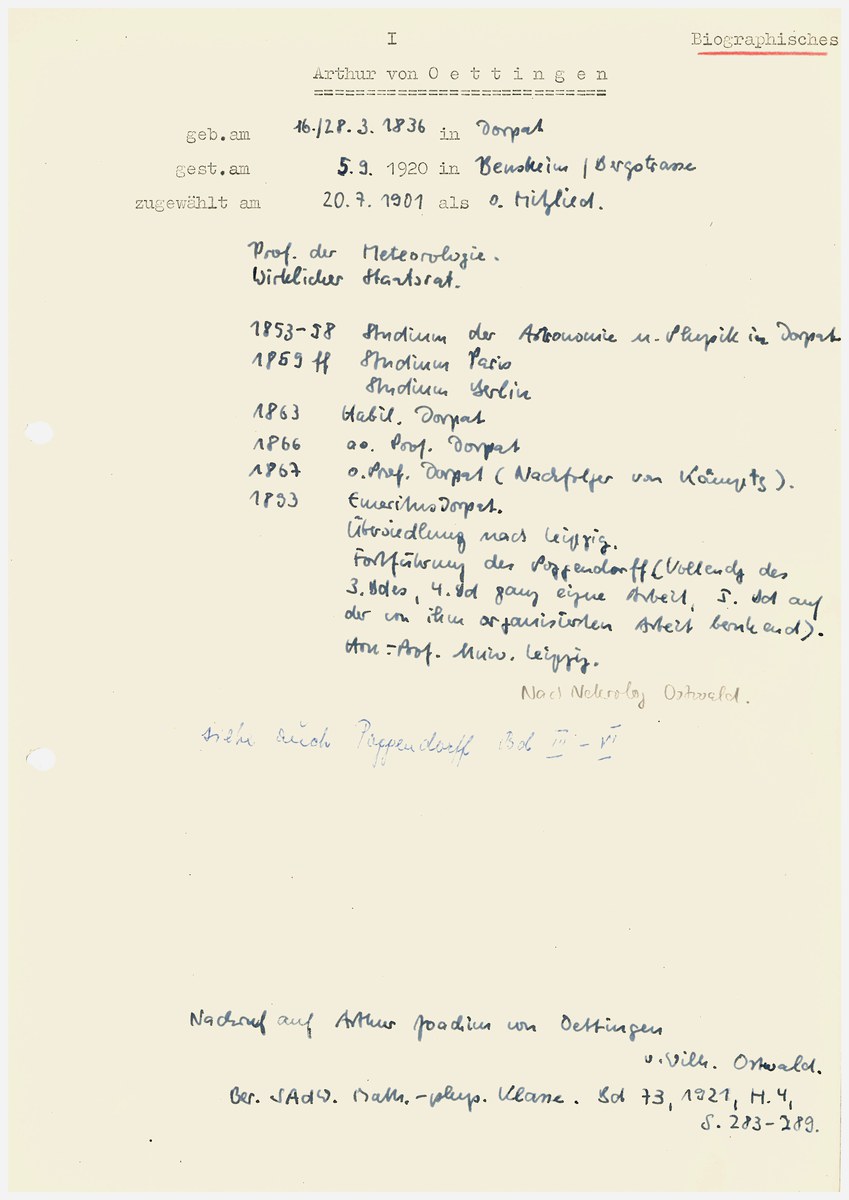 I Biographisches
Arthur von O e t t i n g e n
geb.am 16./28.3.1836 in Dorpat
gest.am 5.9. 1920 in Bensheim / Bergstrasse
zugewählt am 20.7.1901 als o. Mitglied.
Prof. der Meteorologie.
Wirklicher Staatsrat.
1853-58 Studium der Astronomie u. Physik in Dorpat
1859 ff Studium Paris
Studium Berlin
1863 Habil. Dorpat
1866 ao. Prof. Dorpat
1867 o.Prof. Dorpat (Nachfolger von Kämptz).
1893 Emeritus Dorpat.
Übersiedlung nach Leipzig.
Fortführung des Poggendorff (Vollendg des
3. Bdes, 4. Bd ganz eigne Arbeit, 5. Bd auf
der von ihm organisierten Arbeit beruhend).
Hon.-Prof. Univ. Leipzig.
Nach Nekrolog Ostwald.
siehe auch Poggendorff Bd III - VI
Nachruf auf Arthur Joachim von Oettingen
v. Wilh. Ostwald.
Ber. SAdW. Math.-phys. Klasse. Bd 73, 1921, H.4,
S. 283-289.